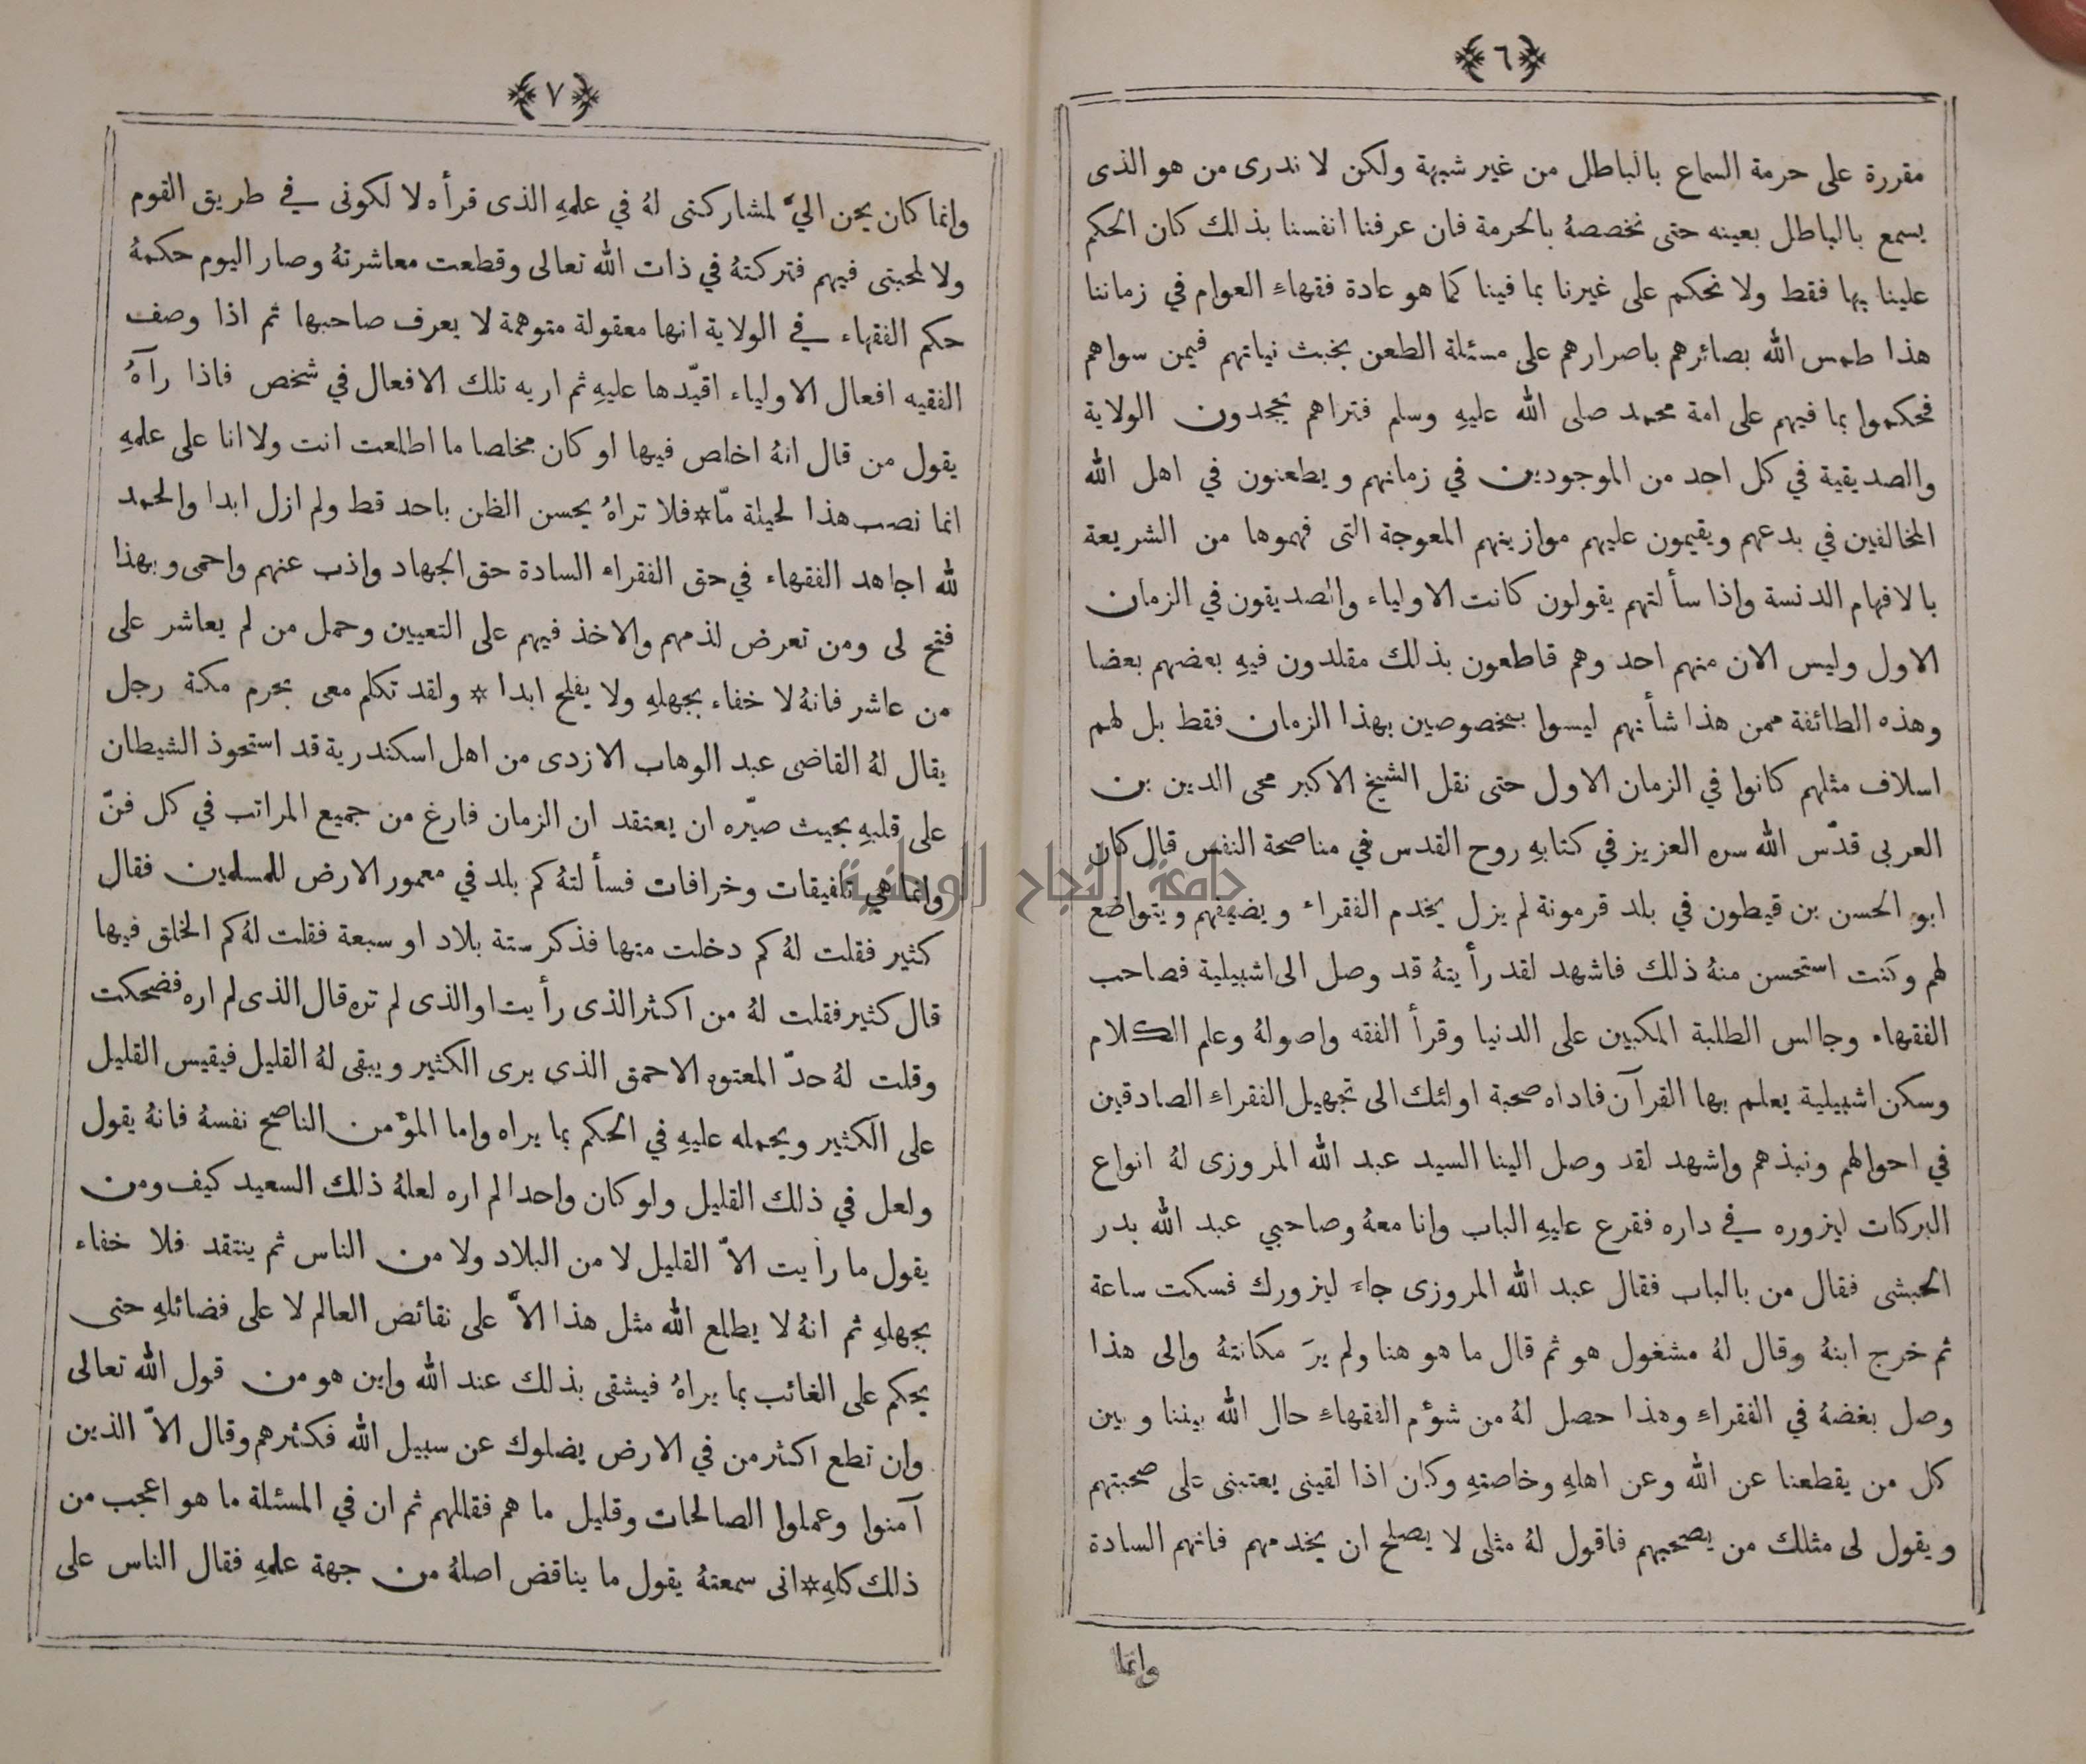 ﴿٦﴾
مقررة على حرمة السماع بالباطل من غير شبهة ولكن لا ندرى من هو الذى
يسمع بالباطل بعينه حتى نخصصهُ بالحرمة فان عرفنا انفسنا بذلك كان الحكم
علينا بها فقط ولا نحكم على غيرنا بما فينا كما هو عادة فقهاء العوام في زماننا
هذا طمس الله بصائرهم باصرارهم على مسئلة الطعن بخبث نياتهم فيمن سواهم
فحكموا بما فيهم على امة محمد صلى الله عليهِ وسلم فتراهم يجحدون الولاية
والصديقية في كل احد من الموجودين في زمانهم ويطعنون في اهل الله
المخالفين في بدعهم ويقيمون عليهم موازينهم المعوجة التى فهموها من الشريعة
بالافهام الدنسة واذا سألتهم يقولون كانت الاولياء والصديقون في الزمان
الاول وليس الان منهم احد وهم قاطعون بذلك مقلدون فيهِ بعضهم بعضا
وهذه الطائفة ممن هذا شأنهم ليسوا بمخصوصين بهذا الزمان فقط بل لهم
اسلاف مثلهم كانوا في الزمان الاول حتى نقل الشيخ الاكبر محى الدين بن
العربى قدّس الله سره العزيز في كتابهِ روح القدس في مناصحة النفس قال كان
ابو الحسن بن قيطون في بلد قرمونة لم يزل يخدم الفقراء ويضيفهم ويتواضع
لهم وكنت استحسن منهُ ذلك فاشهد لقد رأيتهُ قد وصل الى اشبيلية فصاحب
الفقهاء وجالس الطلبة المكبين على الدنيا وقرأ الفقه واصولهُ وعلم الكلام
وسكن اشبيلية يعلم بها القرآن فاداه صحبة اولئك الى تجهيل الفقراء الصادقين
في احوالهم ونبذهم واشهد لقد وصل الينا السيد عبد الله المروزى لهُ انواع
البركات ليزوره في داره فقرع عليهِ الباب وانا معهُ وصاحبي عبد الله بدر
الحبشى فقال من بالباب فقال عبد الله المروزى جاء ليزورك فسكت ساعة
ثم خرج ابنهُ وقال لهُ مشغول هو ثم قال ما هو هنا ولم يرَ مكانتهُ والى هذا
وصل بغضهُ في الفقراء وهذا حصل لهُ من شؤم الفقهاء حال الله بيننا وبين
كل من يقطعنا عن الله وعن اهلهِ وخاصتهِ وكان اذا لقينى يعتبنى على صحبتهم
ويقول لى مثلك من يصحبهم فاقول لهُ مثلى لا يصلح ان يخدمهم فانهم السادة
وانما
﴿٧﴾
وانما كان يحن اليَّ لمشاركتى لهُ في علمهِ الذى قرأه لا لكونى في طريق القوم
ولا لمحبتى فيهم فتركتهُ في ذات الله تعالى وقطعت معاشرتهُ وصار اليوم حكمهُ
حكم الفقهاء في الولاية انها معقولة متوهمة لا يعرف صاحبها ثم اذا وصف
الفقيه افعال الاولياء اقيّدها عليهِ ثم اريه تلك الافعال في شخص فاذا رآهُ
يقول من قال انهُ اخلص فيها او كان مخلصا ما اطلعت انت ولا انا على علمهِ
انما نصب هذا لحيلة مّا * فلا تراهُ يحسن الظن باحد قط ولم ازل ابدا والحمد
لله اجاهد الفقهاء في حق الفقراء السادة حق الجهاد واذب عنهم واحمى وبهذا
فتح لى ومن تعرض لذمهم والاخذ فيهم على التعيين وحمل من لم يعاشر على
من عاشر فانهُ لا خفاء بجهلهِ ولا يفلح ابدا * ولقد تكلم معى بحرم مكة رجل
يقال لهُ القاضى عبد الوهاب الازدى من اهل اسكندرية قد استحوذ الشيطان
على قلبهِ بحيث صيّره ان يعتقد ان الزمان فارغ من جميع المراتب في كل فنّ
وانما هي تلفيقات وخرافات فسألتهُ كم بلد في معمور الارض للمسلمين فقال
كثير فقلت لهُ كم دخلت منها فذكر ستة بلاد او سبعة فقلت لهُ كم الخلق فيها
قال كثير فقلت لهُ من اكثر الذى رأيت او الذى لم تره قال الذى لم اره فضحكت
وقلت لهُ حدّ المعتوه الاحمق الذى يرى الكثير ويبقى لهُ القليل فيقيس القليل
على الكثير ويحمله عليهِ في الحكم بما يراه واما المؤمن الناصح نفسهُ فانهُ يقول
ولعل في ذلك القليل ولو كان واحدا لم اره لعلهُ ذلك السعيد كيف ومن
يقول ما رأيت الاّ القليل لا من البلاد ولا من الناس ثم ينتقد فلا خفاء
بجهلهِ ثم انهُ لا يطلع الله مثل هذا الاّ على نقائص العالم لا على فضائلهِ حتى
يحكم على الغائب بما يراهُ فيشقى بذلك عند الله واين هو من قول الله تعالى
وان تطع اكثر من في الارض يضلوك عن سبيل الله فكثرهم وقال الاّ الذين
آمنوا وعملوا الصالحات وقليل ما هم فقللهم ثم ان في المسئلة ما هو اعجب من
ذلك كلهِ * انى سمعتهُ يقول ما يناقض اصلهُ من جهة علمهِ فقال الناس على
جامعة النجاح الوطنية